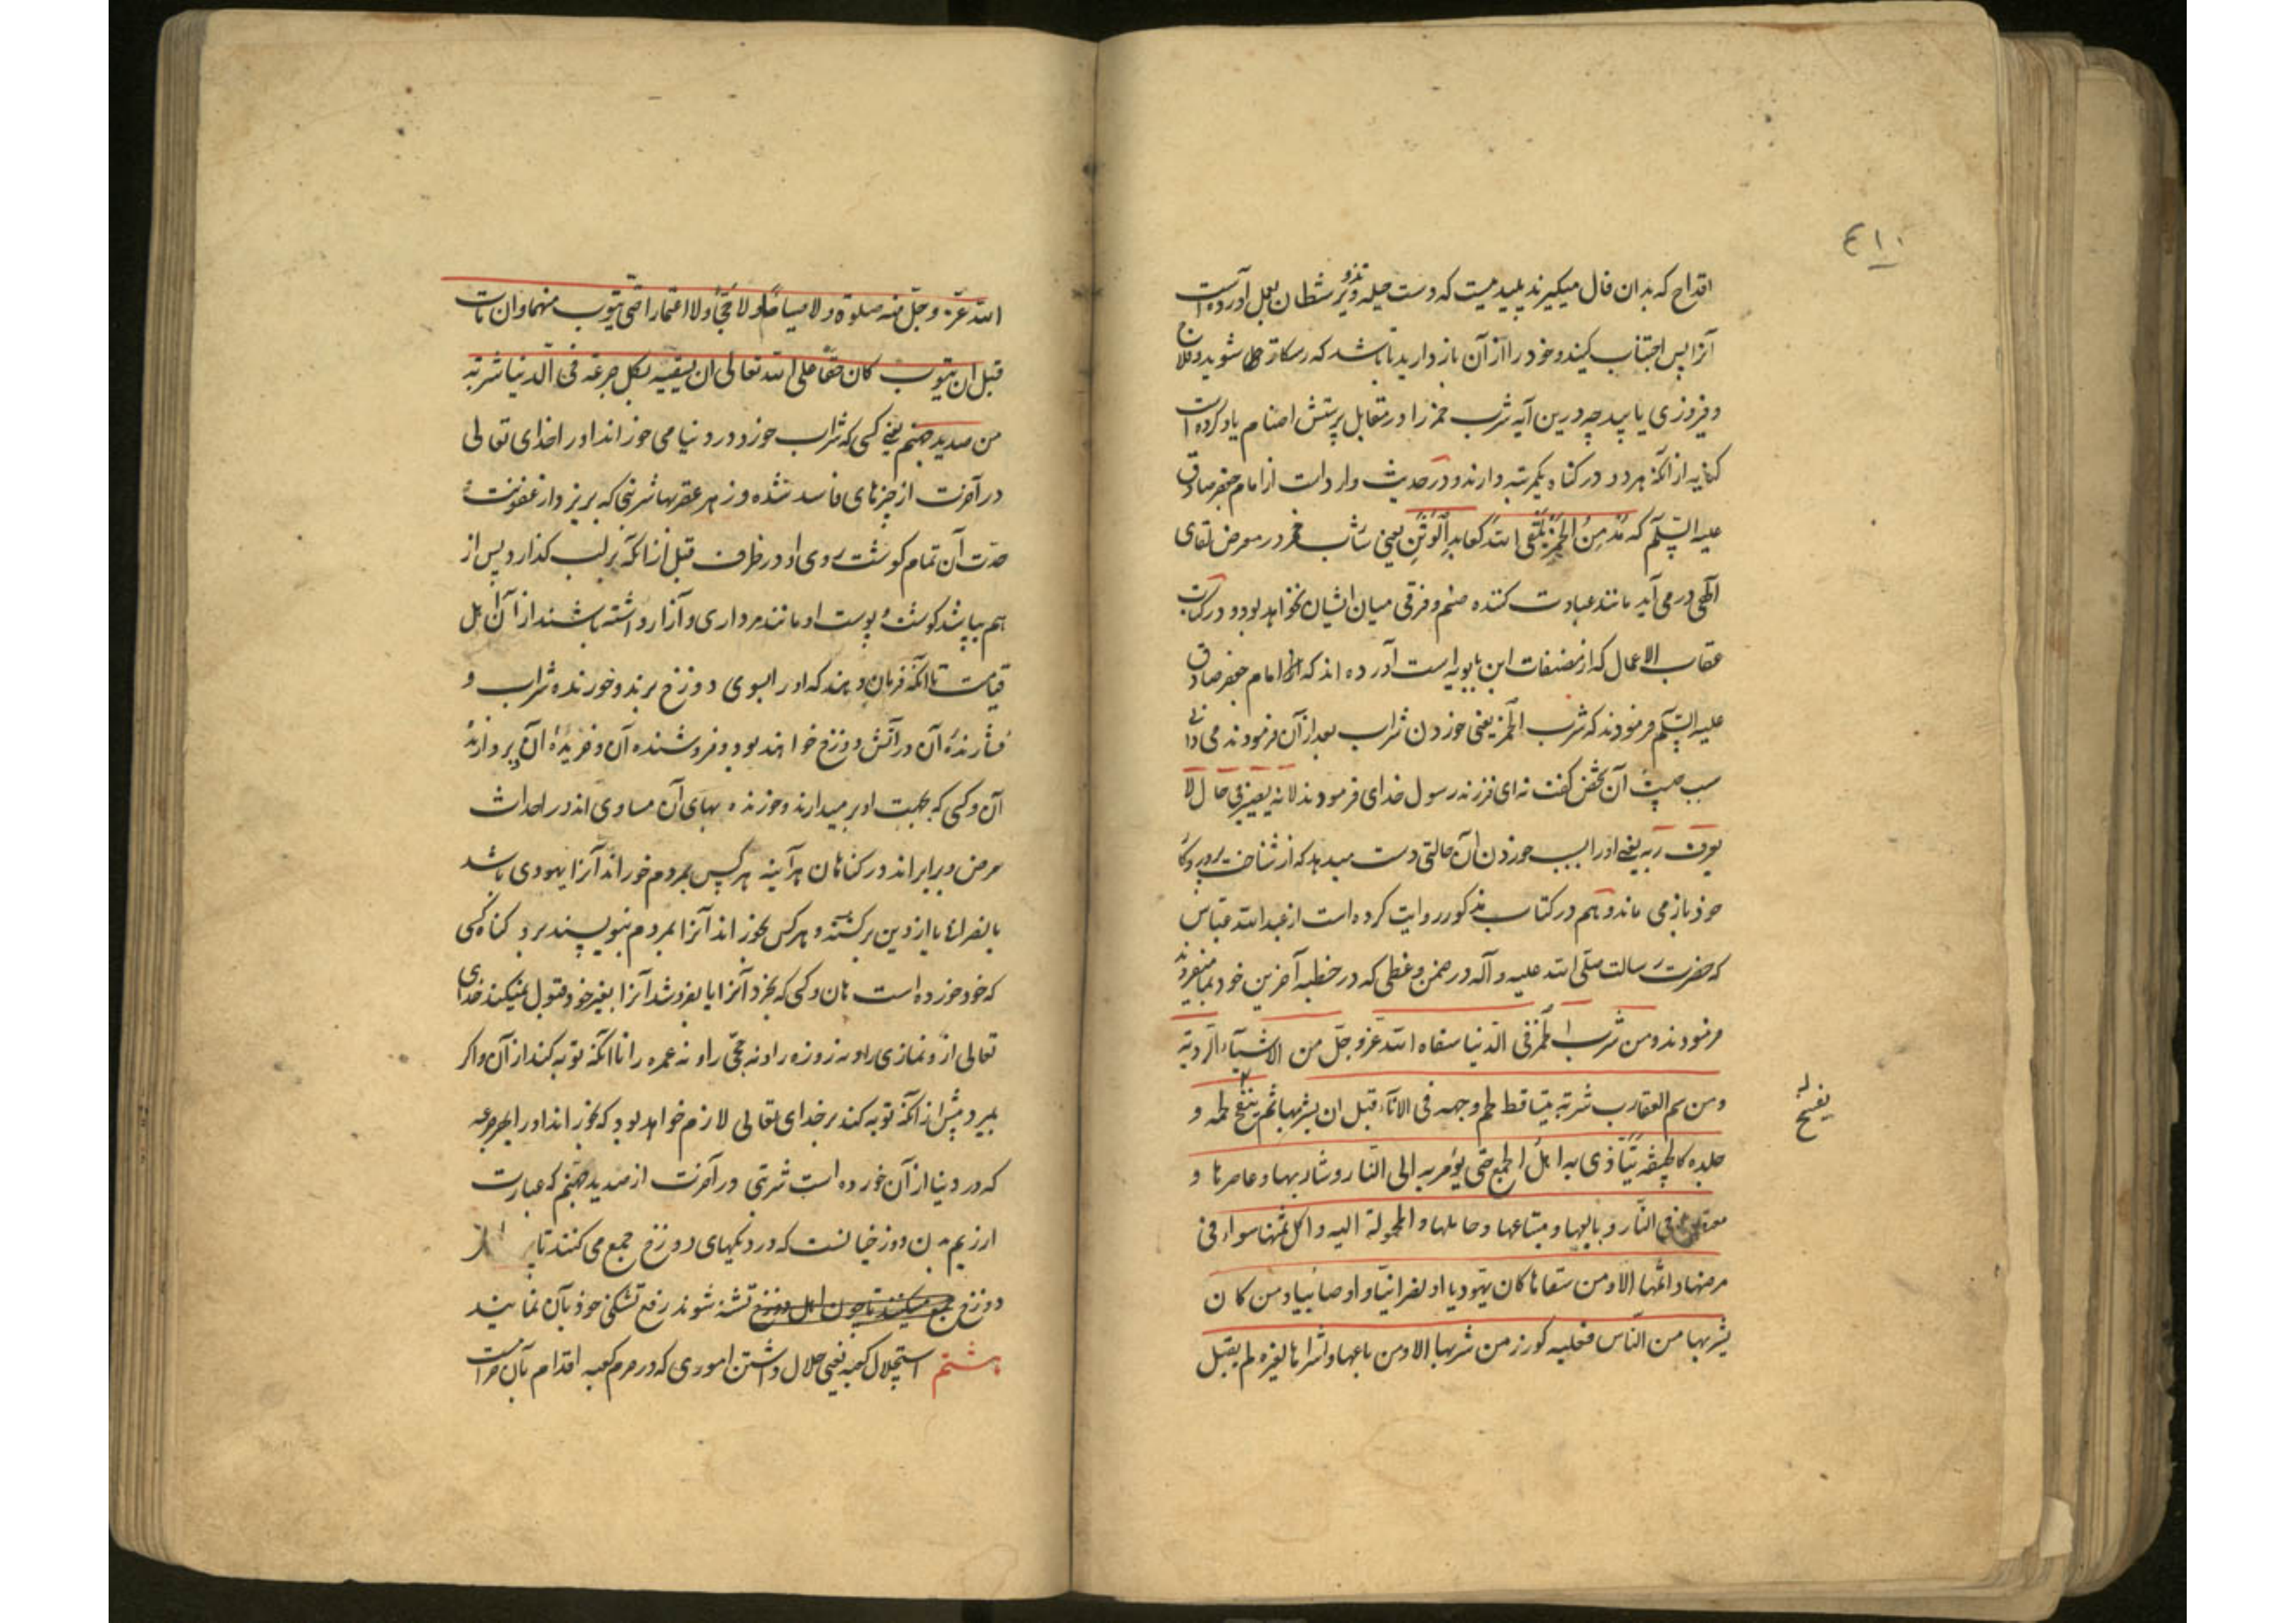 ٤١٠
اقداح که بدان فال میگیرند پلیدیست که دست حیله و تزویر شطان بعمل آورده است
آنرا پس اجتناب کیند و خود را از آن باز دارید تا باشد که رستکار شوید و فلاح
و فیروزی یابید چه درین آیه شرب خمر را در مقابل پرستش اصنام یاد کرده است
کنایه از آنکه هر دو در کناه یکمرتبه دارند و در حدیث وارد است از امام جعفر صادق
علیه السّلم که مُدْمِنُ الخَمْرِ یَلْقی اللهَ کَعابِدِ الْوَثَنِ یعنی شارب خمر در معرض لقای
آلهی در می آید مانند عبادت کننده صنم و فرقی میان ایشان نخواهد بود و در کتاب
عقاب الاعمال که از مصنفات ابن بابویه است آورده اند که امام جعفر صادق
علیه السّلم فرمودند که شرب الخمر یعنی خوردن شراب بعد از آن فرمودند می دانی
سبب چیست آن شخص کفت نه ای فرزند رسول خدای فرمودند لانه یصیر فی حال لا
یعرف ربه یعنی او را بسبب خوردن آن حالتی دست میدهد که از شناخت پروردکار
خود باز می ماند و هم در کتاب مذکور روایت کرده است از عبد الله عباس
که حضرت رسالت صلّی الله علیه و آله در ضمن وعظی که در خطبه آخرین خود میفرمودند
فرمودند و من شرب الخمر فی الدّنیا سقاه الله عزّ و جلّ من الاشیآء الردیّه
و من سم العقارب شربة یتساقط لحم وجهه فی الاناء قبل ان یشربها ثم یتفسخ لحمه و
یفسخ له
جلده کالجیفة یتأذی به اهل الجمع حتّی یؤمر به الی النار و شاربها و عاصرها و
معتصرها فی النّار و بایعها و مبتاعها و حاملها و المحمولة الیه و اکل ثمنها سواء فی
مرضها و اثمها الا و من سقاها کان یهودیا او نصرانیّا و او صابئیا و من کان
یشربها من النّاس فعلیه کوزر من شربها الا و من باعها و اشراها لغیره لم یقبل
الله عزّ و جلّ منه صلوة و لا صیاماً و لا حجّاً و لا اعتمارا حتّی یتوب منهما و ان مات
قبل ان یتوب کان حقّا علی الله تعالی ان یسقیه بکل جرعة فی الدنیا شربة
من صدید جهنم یعنی کسی که شراب خورد در دنیا می خوراند او را خدای تعالی
در آخرت از چیزهای فاسد شده و زهر عقربها شربتی که بریزد از عفونت
حدّت آن تمام کوشت روی او در ظرف قبل از آنکه بر لب کذارد پس از
هم بپاشد کوشت و پوست او مانند مرداری و آزار داشته باشند از آن اهل
قیامت تا آنکه فرمان دهند که او را بسوی دوزخ برند و خورنده شراب و
فشارندهٔ آن در آتش دوزخ خواهند بود و فروشنده آن و خریدهٔ آن و بردارندهٔ
آن و کسی که بجهت او بر میدارند و خورنده بهای آن مساوی اند در احداث
مرض و برابراند در کناهان هر آینه هر کس بمردم خوراند آنرا یهودی باشد
یا نصرانی یا از دین برکشته و هر کس بخوراند آنرا بمردم بنویسند برو کناه کسی
که خود خورده است هان و کسی که بخرد آنرا یا بفروشد آنرا بغیر خود قبول نمیکند خدای
تعالی ازو نمازی را و نه روزه را و نه حجّی را و نه عمره را تا آنکه توبه کند از آن و اکر
بمیرد پیش از آنکه توبه کند بر خدای تعالی لازم خواهد بود که بخوراند او را بهر جرعه
که در دنیا از آن خورده است شربتی در آخرت از صدید جهنم که عبارت
از ریم بدن دوزخیانست که در دیکهای دوزخ جمع می کنند تا
دوزخ جمع میکنند تا چون اهل دوزخ تشنه شوند رفع تشنکی خود بآن نمایند
هشتم استحلال کعبه یعنی حلال داشتن اموری که در حرم کعبه اقدام بآن حرامست